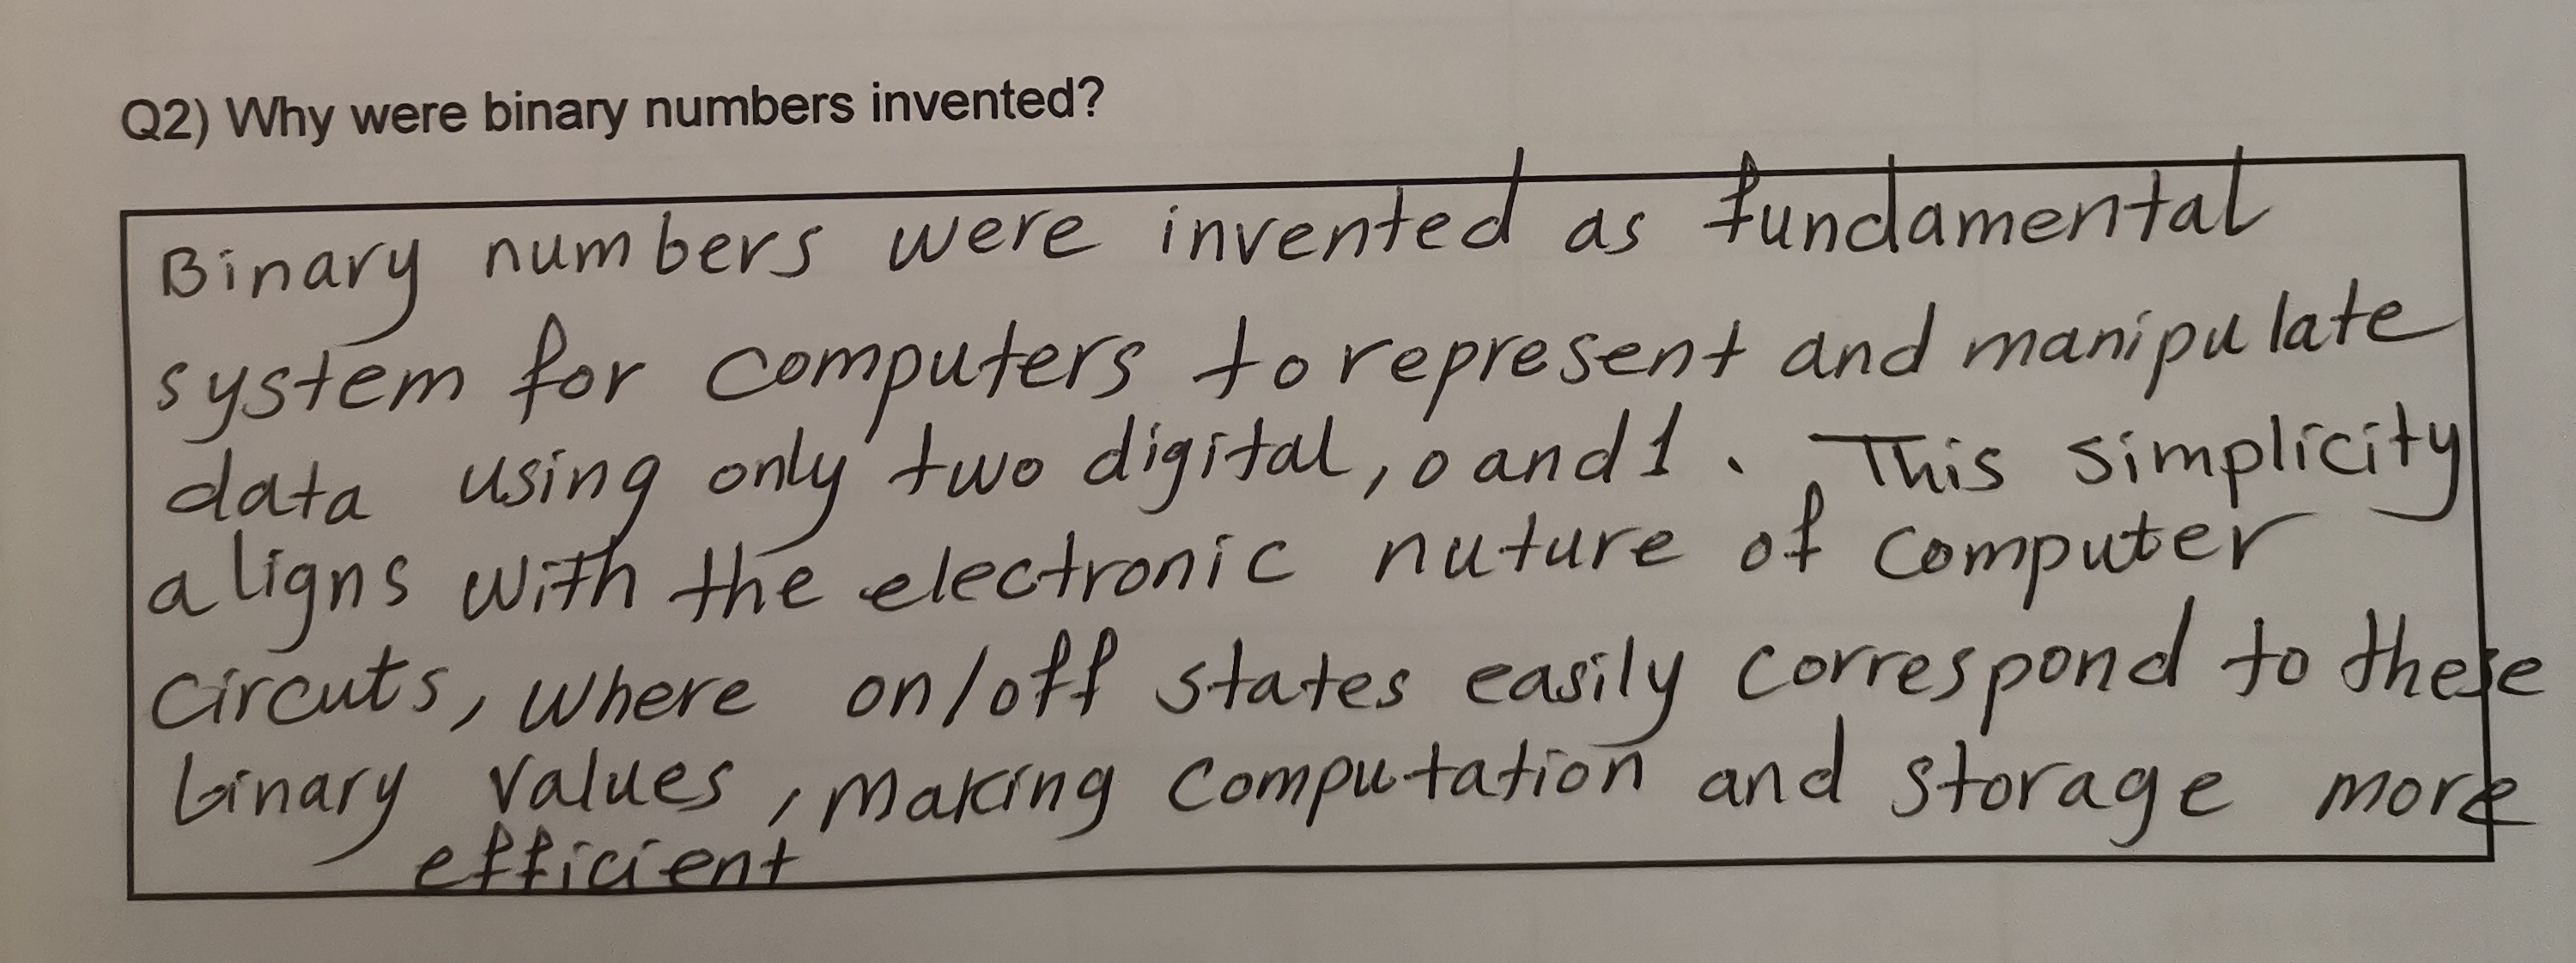 Q2) Why were binary numbers invented?
Binary numbers were invented as fundamental
system for computers to represent and manipulate
data using only two digital, 0 and 1. This simplicity
aligns with the electronic nuture of computer
circuts, where on/off states easily correspond to these
binary values, making computation and storage more
efficient